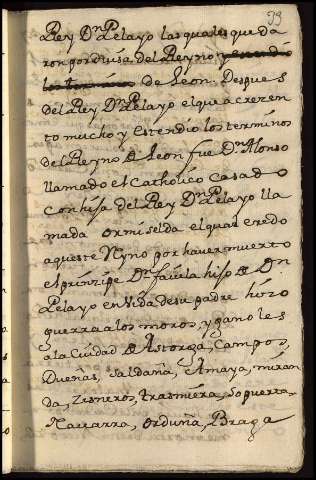 39
Rey Dn Pelayo las quales queda
ron por divisa del Reyno y estendio
los terminos de Leon. Despues
del Rey Dn Pelayo el que acrezen
to mucho y estendio los terminos
del Reyno de Leon fue Dn Alonso
llamado el Catholico Casado
Con hija del Rey Dn Pelayo lla
mada ormiselda el qual eredo
aqueste Ryno por haver muerto
el prinzipe Dn favila hijo de Dn
Pelayo en vida de su padre hizo
guerra a los moros, y ganoles
a la Ciudad de Astorga, Campos,
Dueñas, Saldaña, Amaya, miran
da, zisneros, trasmiera, Sopuerta
Navarra, orduña, Braga